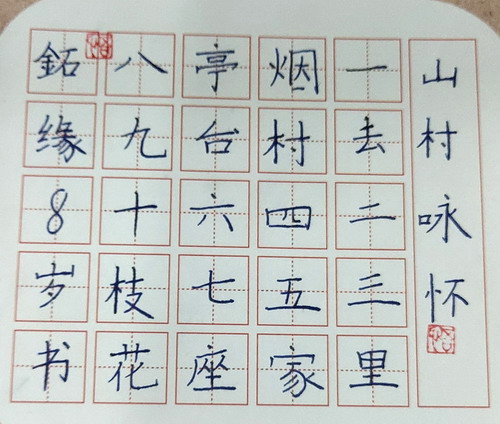 山村咏怀
一去二三里
烟村四五家
亭台六七座
八九十枝花
鉐缘8岁书